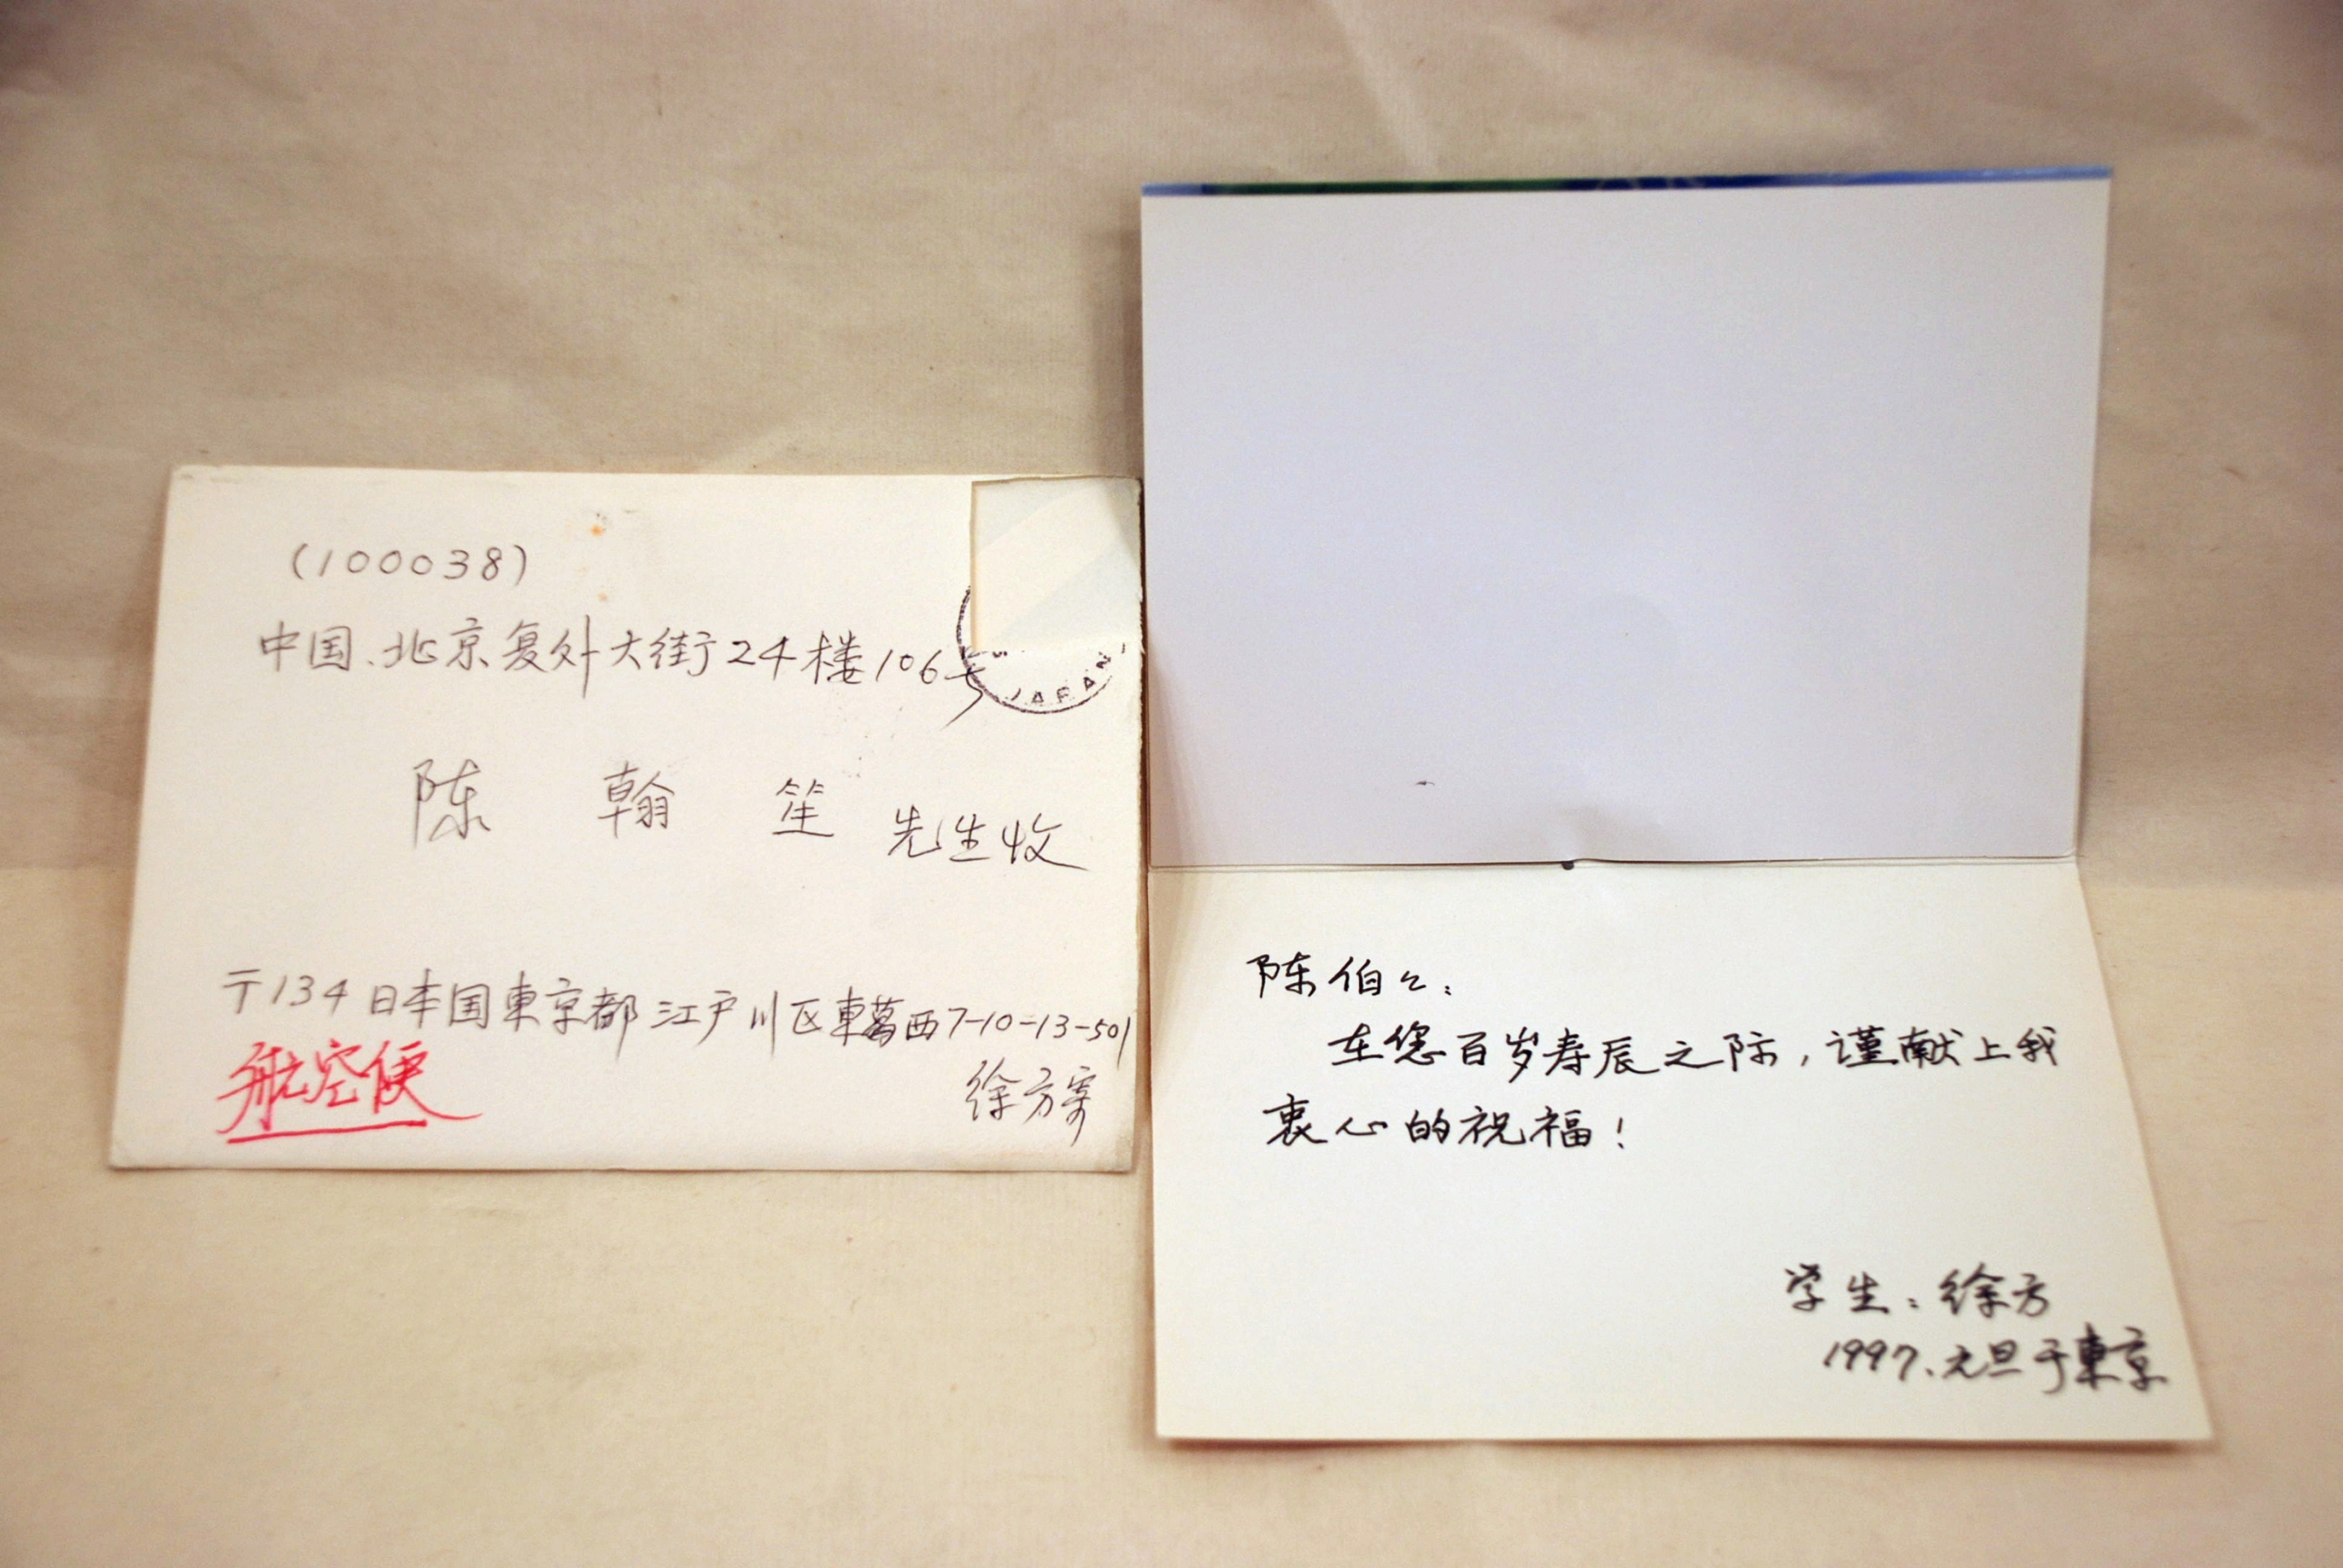 (100038)
中国.北京复外大街24楼106号
JAPAN
陈 翰 笙 先生收
〒134 日本国東京都江戸川区東葛西7-10-13-501
航空便
徐方寄
陈伯々:
在您百岁寿辰之际,谨献上我
衷心的祝福!
学生:徐方
1997.元旦于東京